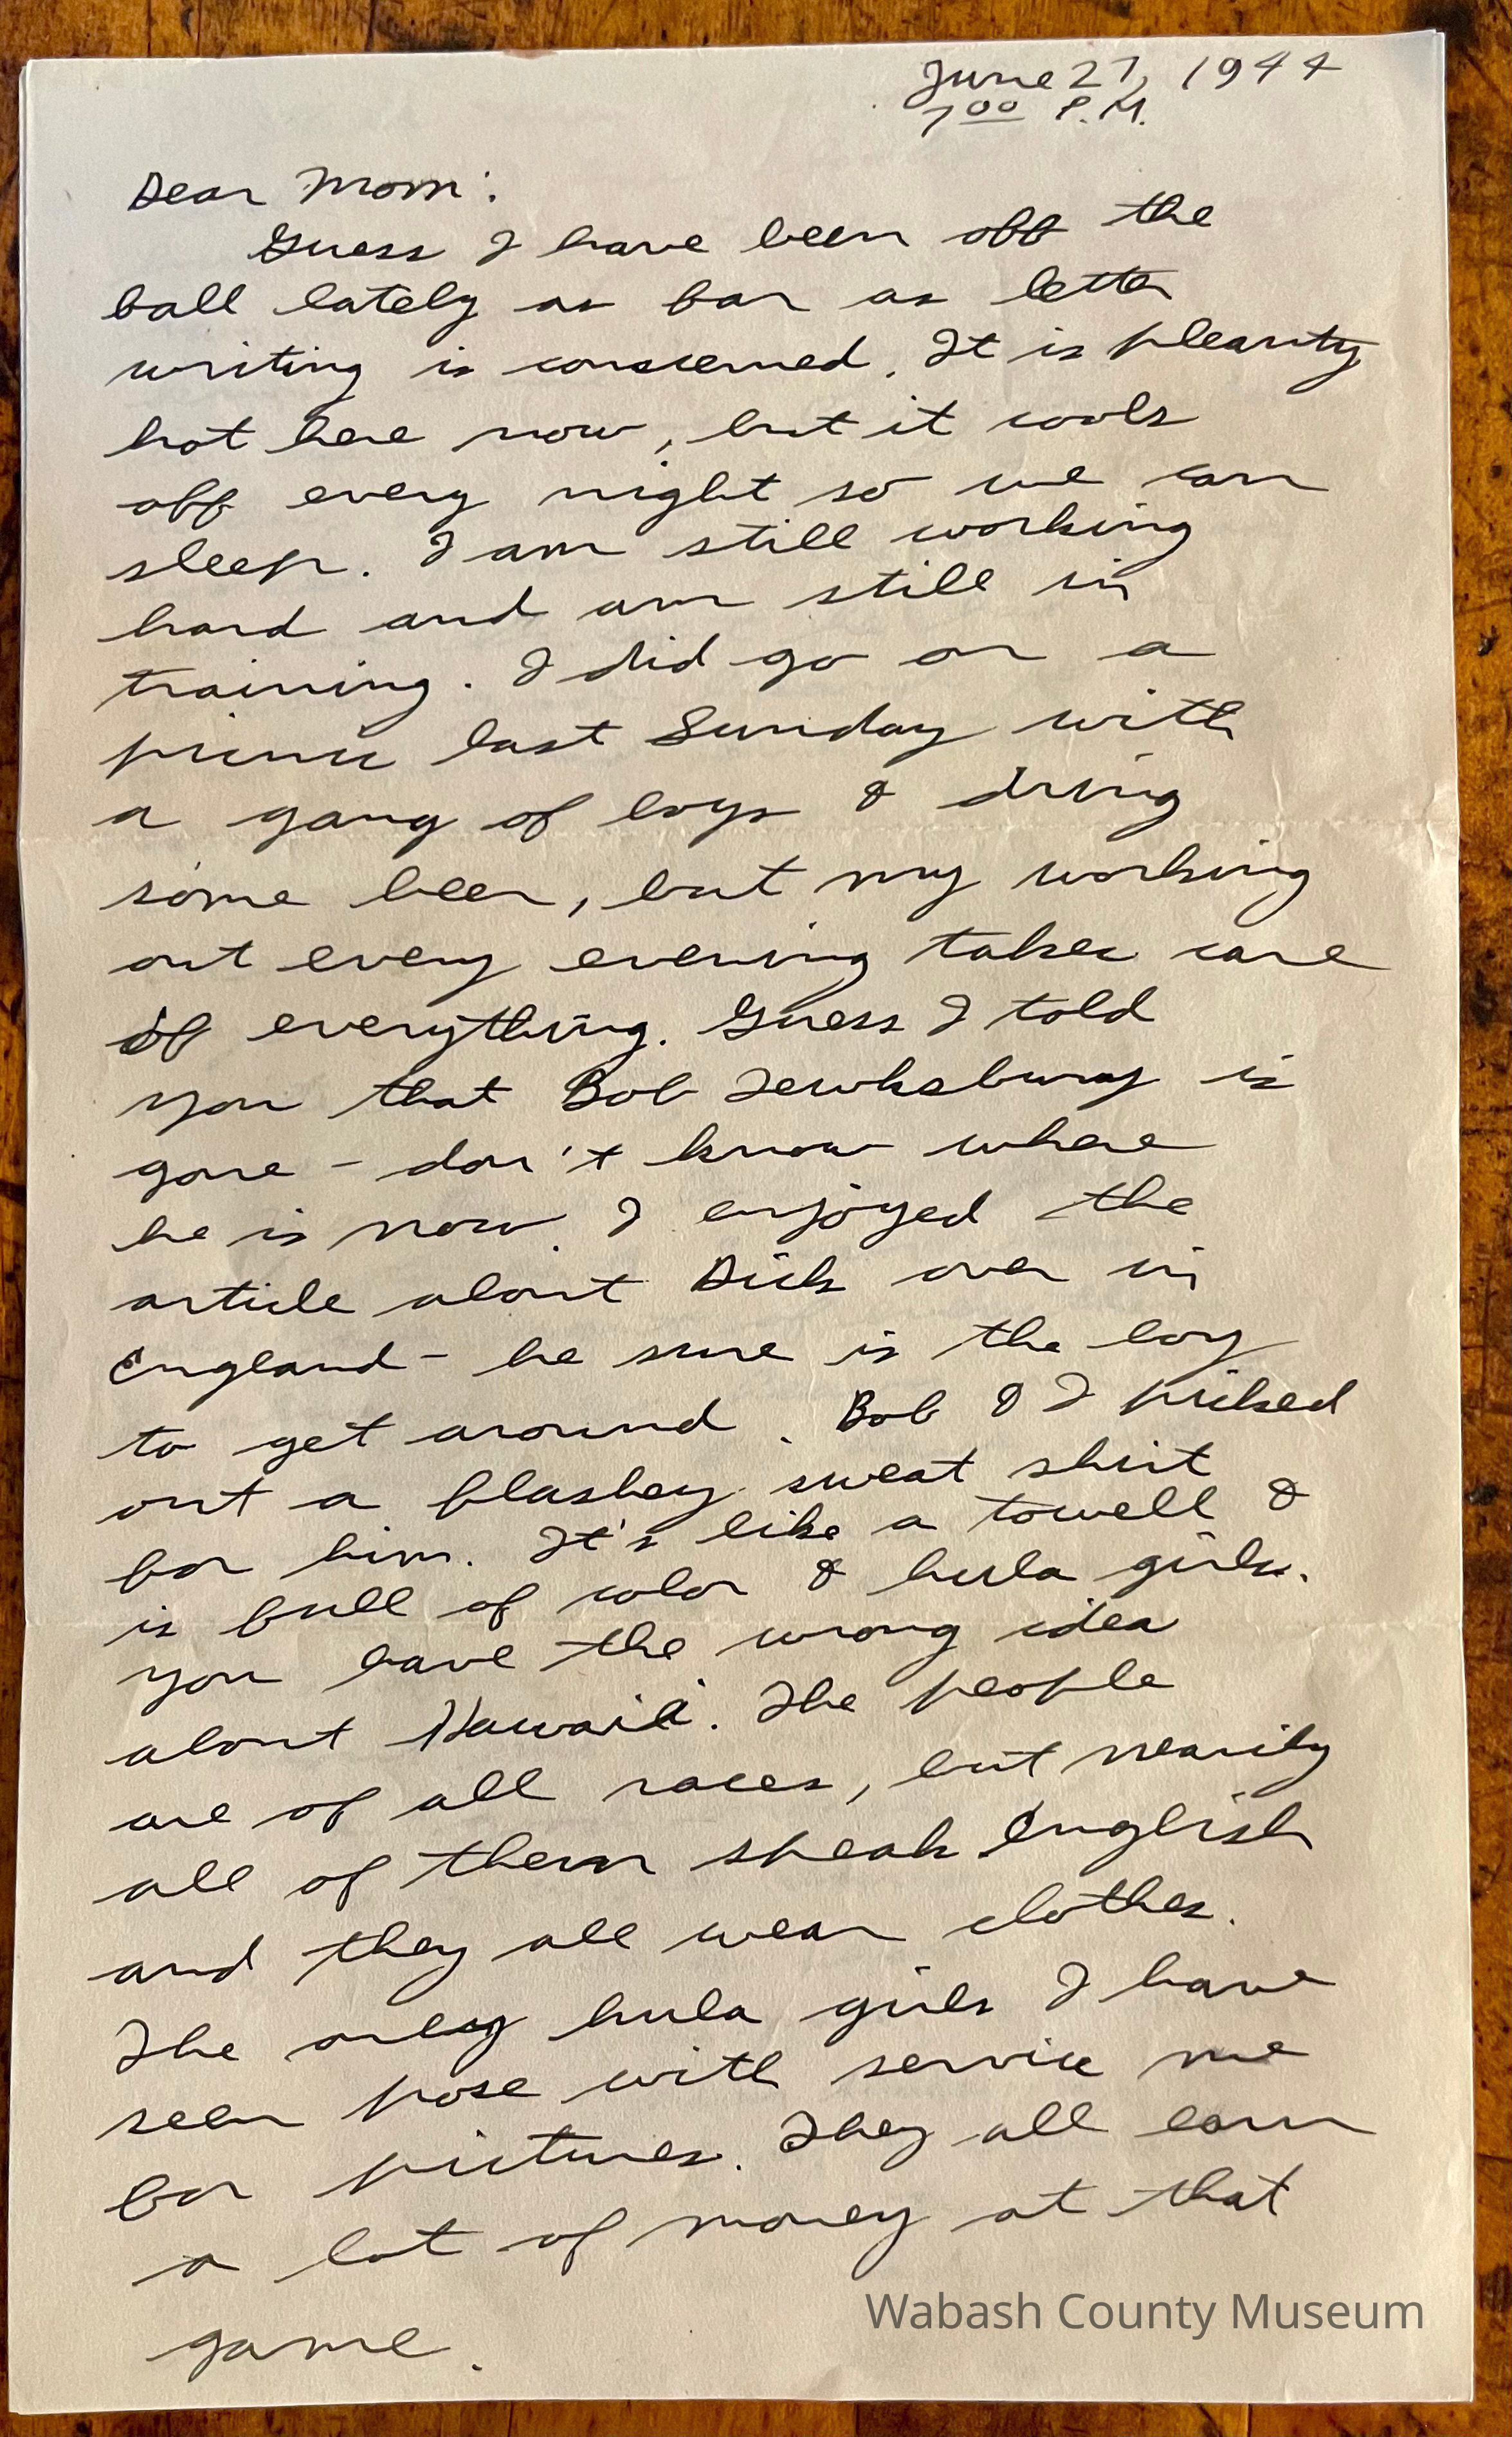 June 27, 1944
7 00 P.M.
Dear Mom:
Guess I have been off the
ball lately as far as letter
writing is conscerned. It is pleanty
hot here now, but it cools
off every night so we can
sleep. I am still working
hard and am still in
training. I did go on a
picnic last Sunday with
a gang of boys & dring
some beer, but my working
out every evening takes care
of everything. Guess I told
you that Bob Tewksbury is
gone - don't know where
he is now. I enjoyed the
article about Dick over in
England - he sure is the boy
to get around. Bob & I picked
out a flashey sweat shirt
for him. It's like a towell &
is full of color & hula girls.
you have the wrong idea
about Hawaii. The people
are of all races, but nearily
all of them speak English
and they all wear clothes.
The only hula girls I have
seen pose with service me
for pictures. They all earn
a lot of money at that
game.
Wabash County Museum